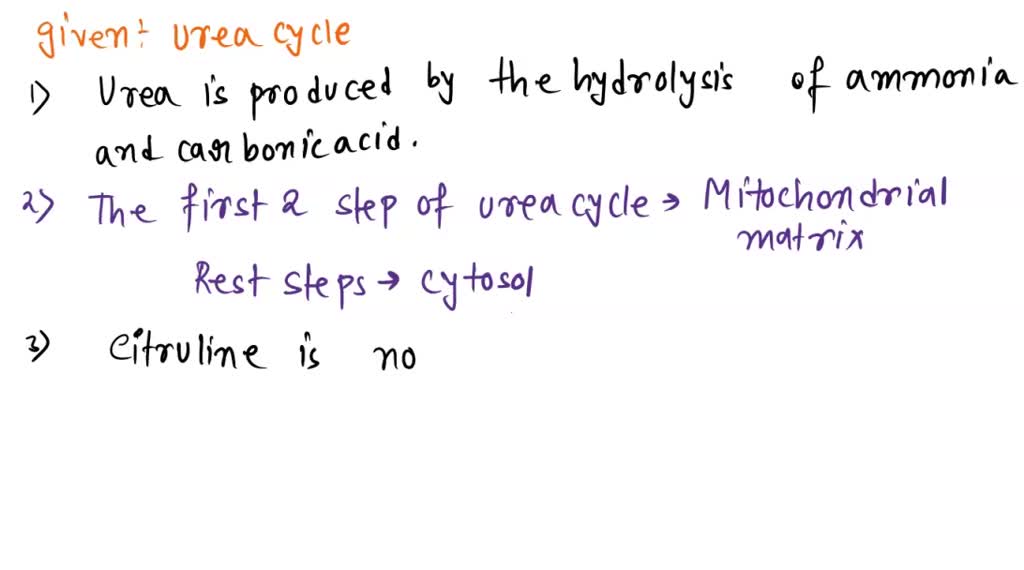 given: urea cycle
1) Urea is produced by the hydrolysis of ammonia
and carbonic acid.
2) The first 2 step of urea cycle → Mitochondrial
matrix
Rest steps → cytosol
3) Citruline is no